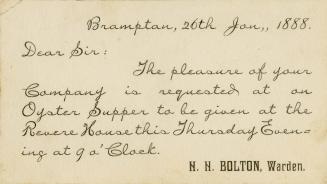 Brampton, 26th Jan., 1888.
Dear Sir:
The pleasure of your
Company is requested at an
Oyster Supper to be given at the
Revere House this Thursday Even-
ing at 9 o'Clock.
N. N. BOLTON, Warden.